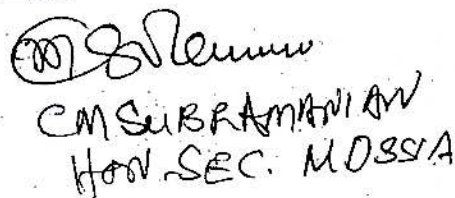 CM SUBRAMANIAN
HON. SEC. MOSSIA